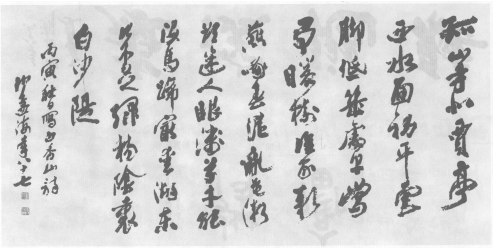 孤山寺北賈亭
西水面初平雲
脚低幾處早鶯
爭暖樹誰家新
燕啄春泥亂花漸
欲迷人眼淺草才能
没馬蹄最愛湖東
行不足綠楊陰裏
白沙隄
丙寅秋日寫白香山詩
沙孟海書八十七